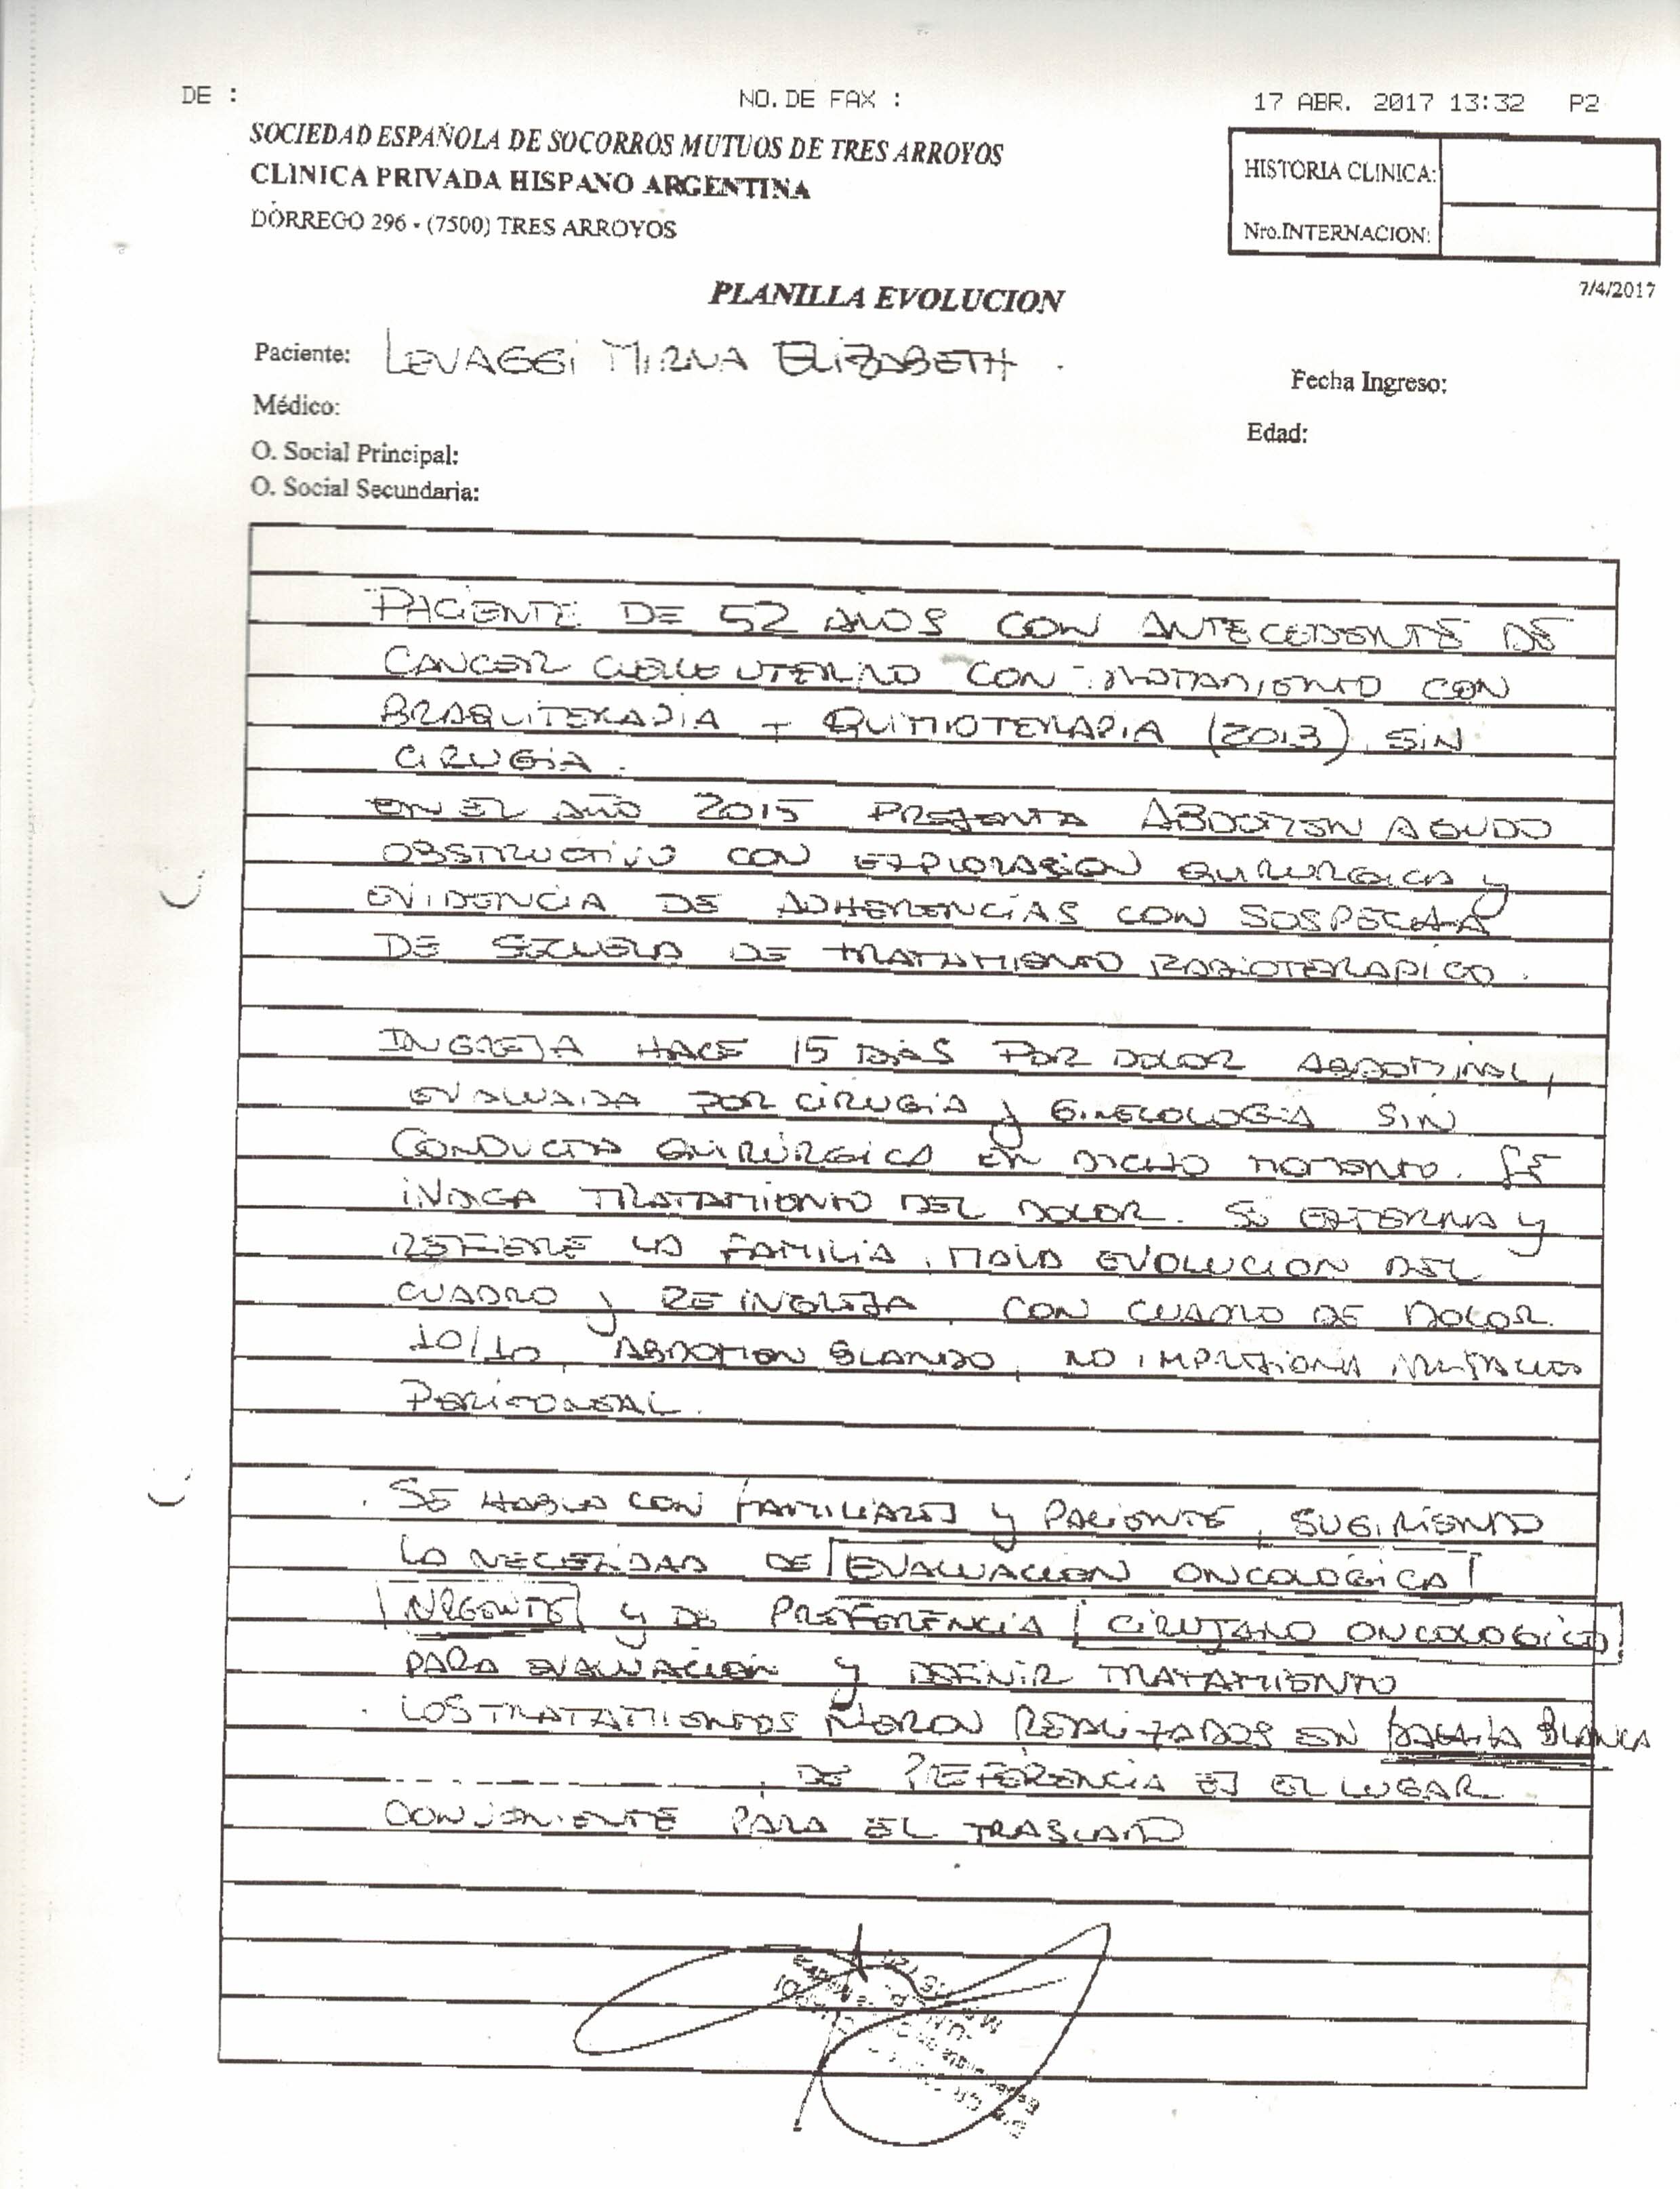 DE :
NO. DE FAX :
17 ABR. 2017 13:32 P2
SOCIEDAD ESPAÑOLA DE SOCORROS MUTUOS DE TRES ARROYOS
CLINICA PRIVADA HISPANO ARGENTINA
DORREGO 296 - (7500) TRES ARROYOS
HISTORIA CLINICA:
Nro.INTERNACION:
7/4/2017
PLANILLA EVOLUCION
Paciente: LEVAGGI MIRNA ELIZABETH.
Fecha Ingreso:
Médico:
Edad:
O. Social Principal:
O. Social Secundaria:
PACIENTE DE 52 AÑOS CON ANTECEDENTE DE
CANCER UTERINO CON TRATAMIENTO CON
BRAQUITERAPIA + QUIMIOTERAPIA (2013) SIN
CIRUGIA.
EN EL AÑO 2015 PRESENTA ABDOMEN AGUDO
OBSTRUCTIVO CON EXPLORACION QUIRURGICA y
EVIDENCIA DE ADHERENCIAS CON SOSPECHA
DE SECUELA DE TRATAMIENTO RADIOTERAPICO.
INGRESA HACE 15 DIAS POR DOLOR ABDOMINAL,
EVALUADA POR CIRUGIA y GINECOLOGIA SIN
CONDUCTA QUIRÚRGICA EN DICHO MOMENTO. SE
INDICA TRATAMIENTO DEL DOLOR. SE EXTERNA y
REFIERE LA FAMILIA, MALA EVOLUCION DEL
CUADRO y REINGRESA CON CUADRO DE DOLOR
10/10, ABDOMEN BLANDO, NO IMPRESIONA
PERITONEAL.
. SE HABLA CON FAMILIARES y PACIENTE, SUGIRIENDO
LA NECESIDAD DE EVALUACION ONCOLÓGICA
URGENTE y DE PREFERENCIA CIRUJANO ONCOLOGICO
PARA EVALUACION y DEFINIR TRATAMIENTO
. LOS TRATAMIENTOS FUERON REALIZADOS EN BAHIA BLANCA
, DE PREFERENCIA ES EL LUGAR
CONVENIENTE PARA EL TRASLADO